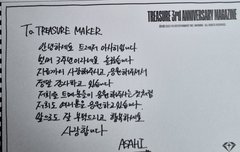 TREASURE 3rd ANNIVERSARY MAGAZINE
To TREASURE MAKER
안녕하세요 트레저 아사히입니다
벌써 3주년이라니 놀랍습니다
지금까지 사랑해주시고, 응원해주셔서
정말 감사하고 있습니다.
저희를 트메분들이 응원해주시는 것처럼
저희도 여러분을 응원하고 있습니다.
앞으로도 잘 부탁드리고 행복하세요
사랑합니다
ASAHI